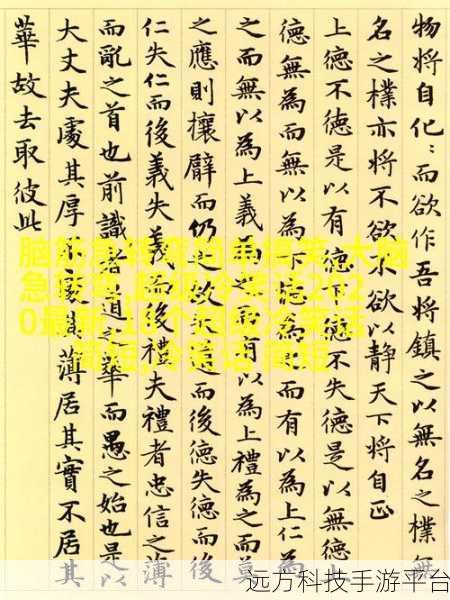 物将自化：而欲作吾将鎮之以無名之樸無
名之樸亦将不欲不欲以静天下将自正
上德不德是以有德下德不失德是以無德上
德無為而無以為下德為之而有以為上仁為
之而無以為上義為之而有以為上禮為之而莫
之應則攘臂而仍之故失道而後德失德而後
仁失仁而後義失義而後禮夫禮者忠信之薄
而亂之首也前識者道之華而愚之始也是以
大丈夫處其厚不處其薄居其實不居其
華故去取彼此
脑筋急转弯简单搞笑,大脑
急转弯,超级冷笑话202
0最新,10个超级冷笑话
简短,冷笑话 简短
远方科技手游平台